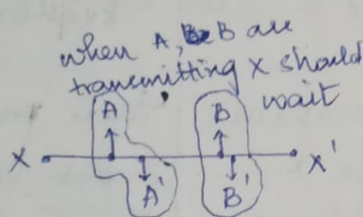 when A, B are
transmitting X should
wait
A B
X X'
A' B'